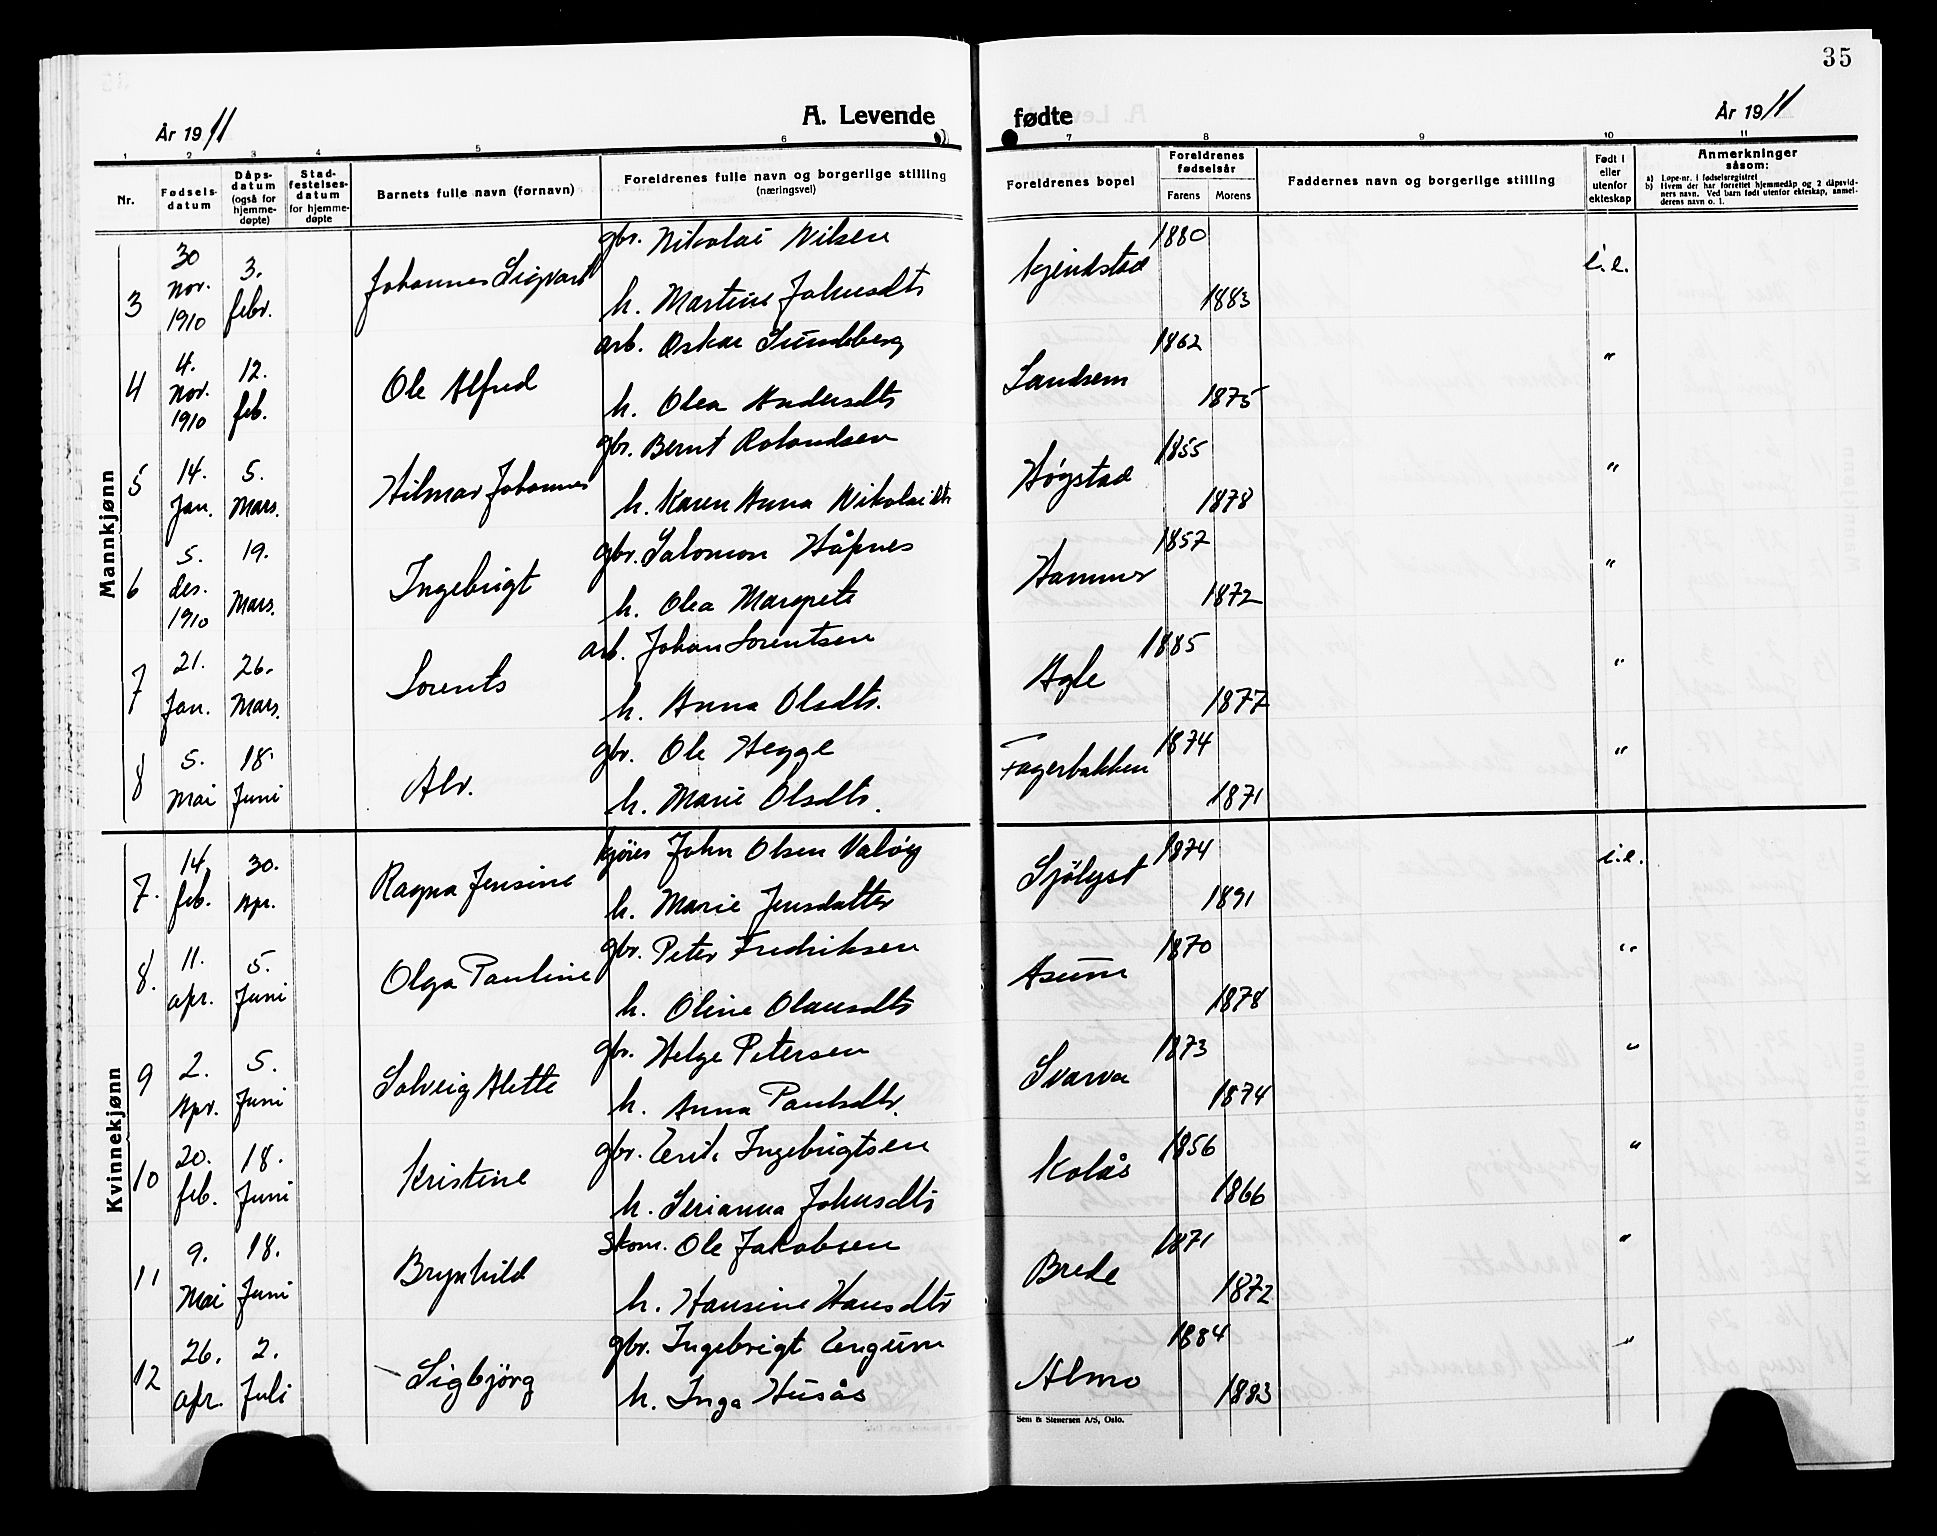 35
År 1911
A. Levende
fødte
År 1911
1 2 3 4 5 6 7 8 9 10 11
Nr.
Fødsels-
datum
Dåps-
datum
(også for
hjemme-
døpte)
Stad-
festelses-
datum
for hjemme-
døpte
Barnets fulle navn (fornavn)
Foreldrenes fulle navn og borgerlige stilling
(næringsvei)
Foreldrenes bopel
Foreldrenes
fødselsår
Farens Morens
Faddernes navn og borgerlige stilling
Født i
eller
utenfor
ekteskap
Anmerkninger
såsom:
a) Løpe-nr. i fødselsregistret
b) Hvem der har forrettet hjemmedåp og 2 dåpsvid-
ners navn. Ved barn født utenfor ekteskap, anmel-
derens navn o. l.
Mannkjønn
3 30 nov. 1910 3. febr. Johannes Sigvart gbr. Nikolai Nilsen Kjendstad 1880 i.e.
h. Martine Johnsdtr 1883
4 4. nov. 1910 12. feb. Ole Alfred arb. Oskar Sundberg Landsem 1862 "
h. Olea Andersdtr 1875
5 14. Jan. 5. Mars. Hilmar Johannes gbr. Bernt Rolandsen Høgstad 1855 "
h. Karen Anna Nikolaidtr 1878
6 5. des. 1910 19. Mars. Ingebrigt gbr. Salomon Håpnes Hammer 1857 "
h. Olea Margrete 1872
7 21. Jan. 26. Mars. Lorents arb. Johan Lorentsen Agle 1885 "
h. Anna Olsdtr. 1877
8 5. Mai 18. Juni Alv. gbr. Ole Hegge Fagerbakken 1874 "
h. Marie Olsdtr. 1871
Kvinnekjønn
7. 14. feb. 30. Apr. Ragna Jensine kjører John Olsen Valøy Sjölyst 1874 i.e.
h. Marie Jensdatter 1891
8. 11. apr. 5. Juni Olga Pauline gbr. Peter Fredriksen Asum 1870 "
h. Oline Olausdtr 1878
9 2. Apr. 5. Juni Solveig Alette gbr. Helge Petersen Svarva 1873 "
h. Anna Paulsdtr. 1874
10 20. feb. 18. Juni Kristine gbr. Erik Ingebrigtsen Kolås 1856 "
h. Serianna Johnsdtr 1866
11 9. Mai 18. Juni Brynhild Skom. Ole Jakobsen Brede 1871 "
h. Hansine Hansdtr 1872
12 26. apr. 2. Juli Sigbjörg gbr. Ingebrigt Engum Almo 1884 "
h. Inga Husås 1883
Sem & Stenersen A/S, Oslo.